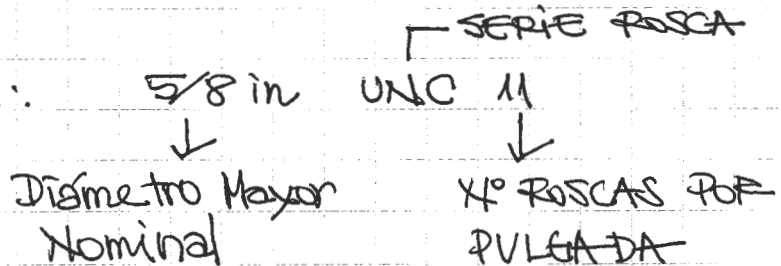 SERIE ROSCA
∴ 5/8 in UNC 11
Diámetro Mayor
Nominal
Nº ROSCAS POR
PULGADA